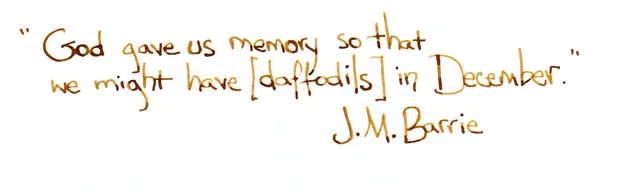 "God gave us memory so that
we might have [daffodils] in December."
J.M. Barrie